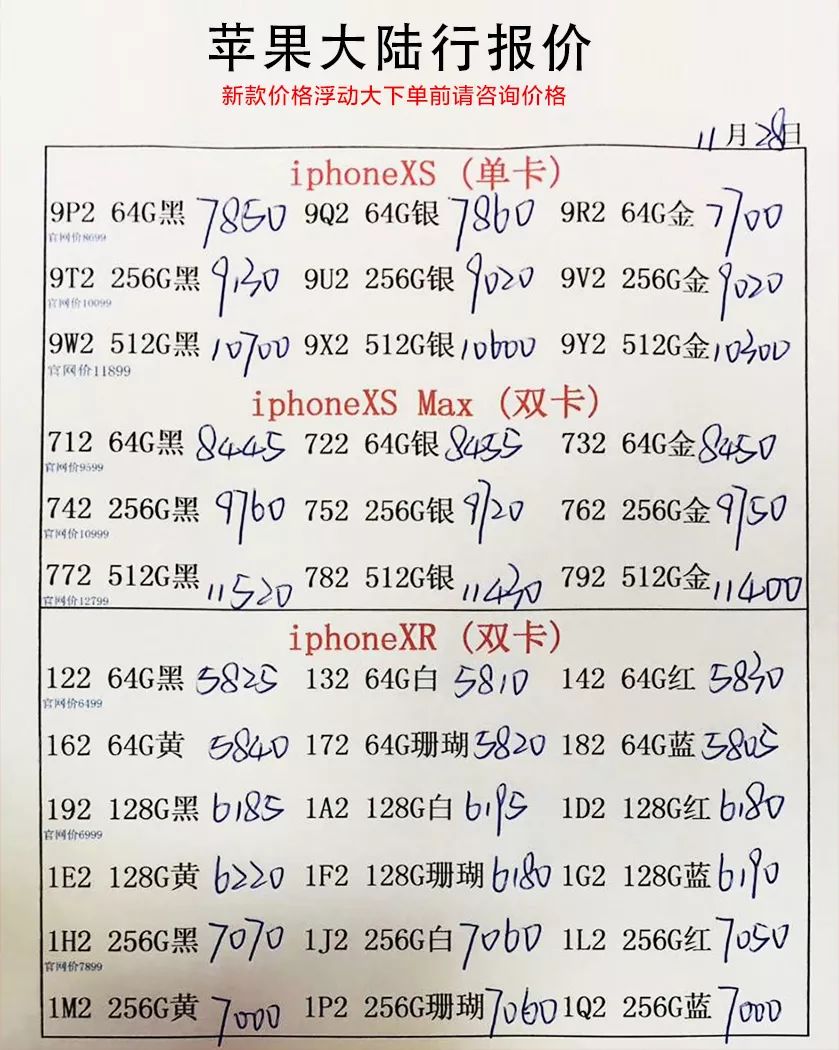 苹果大陆行报价
新款价格浮动大下单前请咨询价格
11月28日
iphoneXS (单卡)
9P2 64G黑 7850 9Q2 64G银 7860 9R2 64G金 7700
官网价8699
9T2 256G黑 9130 9U2 256G银 9020 9V2 256G金 9020
官网价10099
9W2 512G黑 10700 9X2 512G银 10600 9Y2 512G金 10300
官网价11899
iphoneXS Max (双卡)
712 64G黑 8445 722 64G银 8455 732 64G金 8450
官网价9599
742 256G黑 9760 752 256G银 9720 762 256G金 9750
官网价10999
772 512G黑 11520 782 512G银 11430 792 512G金 11400
官网价12799
iphoneXR (双卡)
122 64G黑 5825 132 64G白 5810 142 64G红 5830
官网价6499
162 64G黄 5840 172 64G珊瑚 5820 182 64G蓝 5805
192 128G黑 6185 1A2 128G白 6195 1D2 128G红 6180
官网价6999
1E2 128G黄 6220 1F2 128G珊瑚 6180 1G2 128G蓝 6190
1H2 256G黑 7070 1J2 256G白 7060 1L2 256G红 7050
官网价7899
1M2 256G黄 7000 1P2 256G珊瑚 7060 1Q2 256G蓝 7000